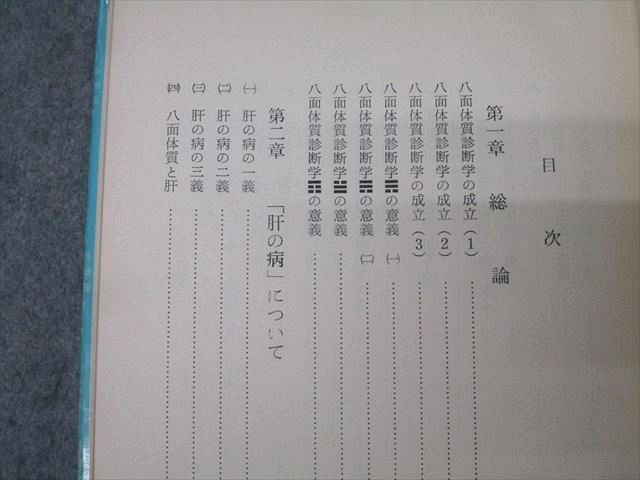 目次
第一章 総論
八面体質診断学の成立(1)…
八面体質診断学の成立(2)…
八面体質診断学の成立(3)…
八面体質診断学の意義 ㈠…
八面体質診断学の意義 ㈡…
八面体質診断学の意義…
八面体質診断学の意義…
第二章 「肝の病」について
㈠ 肝の病の一義…
㈡ 肝の病の二義…
㈢ 肝の病の三義…
㈣ 八面体質と肝…